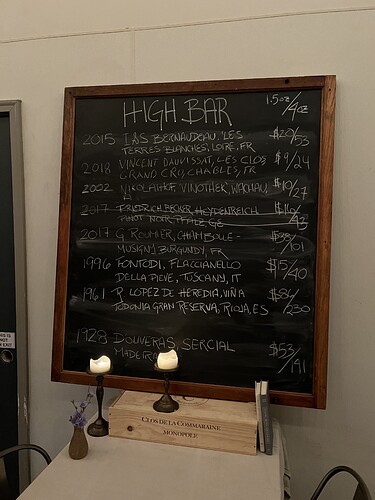 HIGH BAR 1.5oz/4oz
2015 J&S BERNAUDEAU, 'LES $20/53
TERRES BLANCHES', LOIRE, FR
2018 VINCENT DAUVISSAT, LES CLOS $9/24
GRAND CRU, CHABLIS, FR
2002 NIKOLAIHOF VINOTHEK, WACHAU, $10/27
2017 FRIEDRICH BECKER, HEYDENREICH
PINOT NOIR, PFALZ, GE
2017 G ROUMIER, CHAMBOLLE- $38/101
MUSIGNY, BURGUNDY, FR
1996 FONTODI, FLACCIANELLO $15/40
DELLA PIEVE, TUSCANY, IT
1961 R. LOPEZ DE HEREDIA, VIÑA $86/230
TODONIA GRAN RESERVA, RIOJA, ES
1928 D'OUVERAS, SERCIAL $53/141
MADEIRA
THIS IS
NOT
AN EXIT
CLOS DE LA COMMARAINE
MONOPOLE